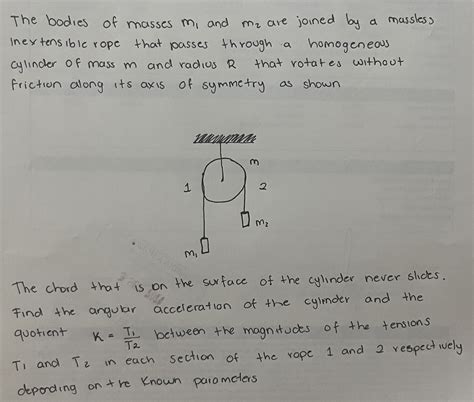 The bodies of masses m1 and m2 are joined by a massless
inextensible rope that passes through a homogeneous
cylinder of mass m and radius R that rotates without
friction along its axis of symmetry as shown
m
1
2
m2
m1
The chord that is on the surface of the cylinder never slides.
Find the angular acceleration of the cylinder and the
quotient K = T1/T2 between the magnitudes of the tensions
T1 and T2 in each section of the rope 1 and 2 respectively
depending on the known parameters